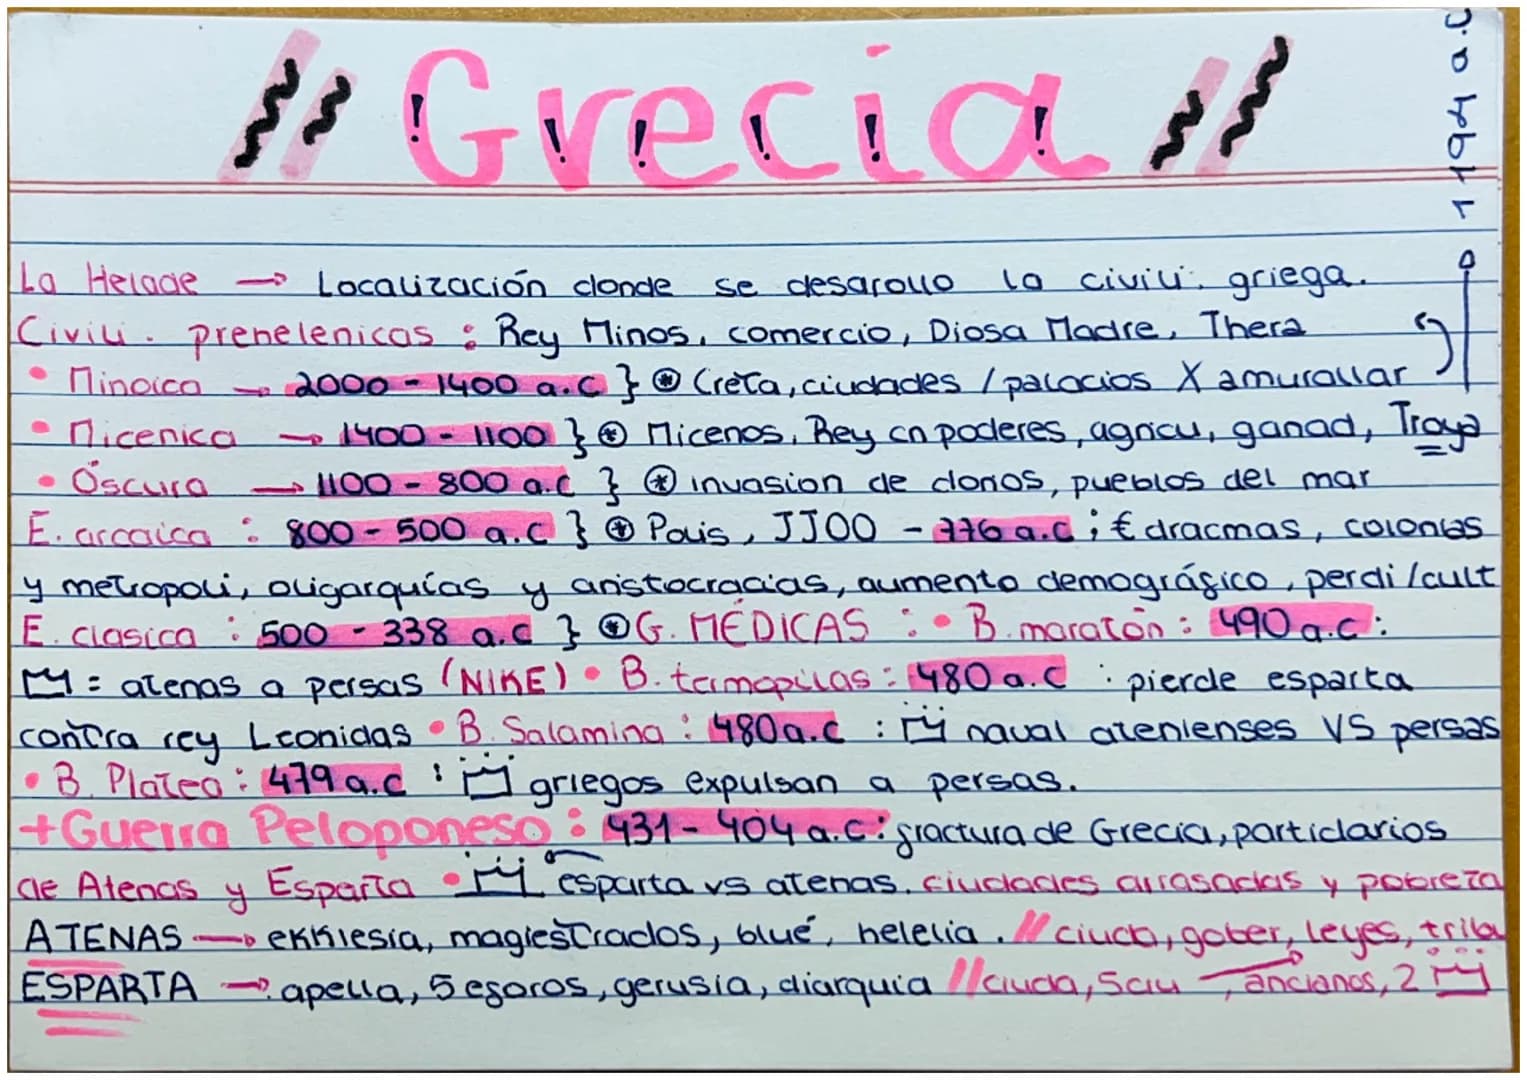 // Grecia //
1194 a.C
La Helade → Localización donde se desarollo la civili. griega.
Civili. prehelenicas : Rey Minos, comercio, Diosa Madre, Thera
• Minoica → 2000 - 1400 a.C } ⊛ Creta, ciudades / palacios X amurallar
• Micenica → 1400 - 1100 } ⊛ Micenos, Rey cn poderes, agricu, ganad, Troya
• Oscura → 1100 - 800 a.C } ⊛ invasion de dorios, pueblos del mar
E. arcaica : 800 - 500 a.C } ⊛ Polis, JJOO - 776 a.C ; € dracmas, colonias
y metropoli, oligarquías y aristocracias, aumento demográfico, perdi/cult
E. clasica : 500 - 338 a.C } ⊛ G. MÉDICAS : • B. maratón : 490 a.C :
= atenas a persas (NIKE) • B. termopilas : 480 a.C : pierde esparta
contra rey Leonidas • B. Salamina : 480 a.C : naval atenienses VS persas
• B. Platea : 479 a.C : griegos expulsan a persas.
+ Guerra Peloponeso : 431 - 404 a.C : fractura de Grecia, particlarios
de Atenas y Esparta • esparta vs atenas. ciudades arrasadas y pobreza
ATENAS → ekklesia, magiestrados, blué, helelia. // ciuda, gober, leyes, tribu
ESPARTA → apella, 5 eforos, gerusía, diarquia // ciuda, 5 ciu → ancianos, 2